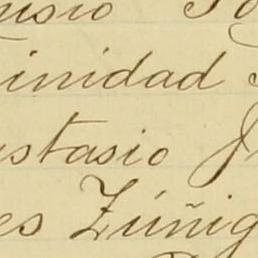 usio
inidad
ustasio J
es Zúñig